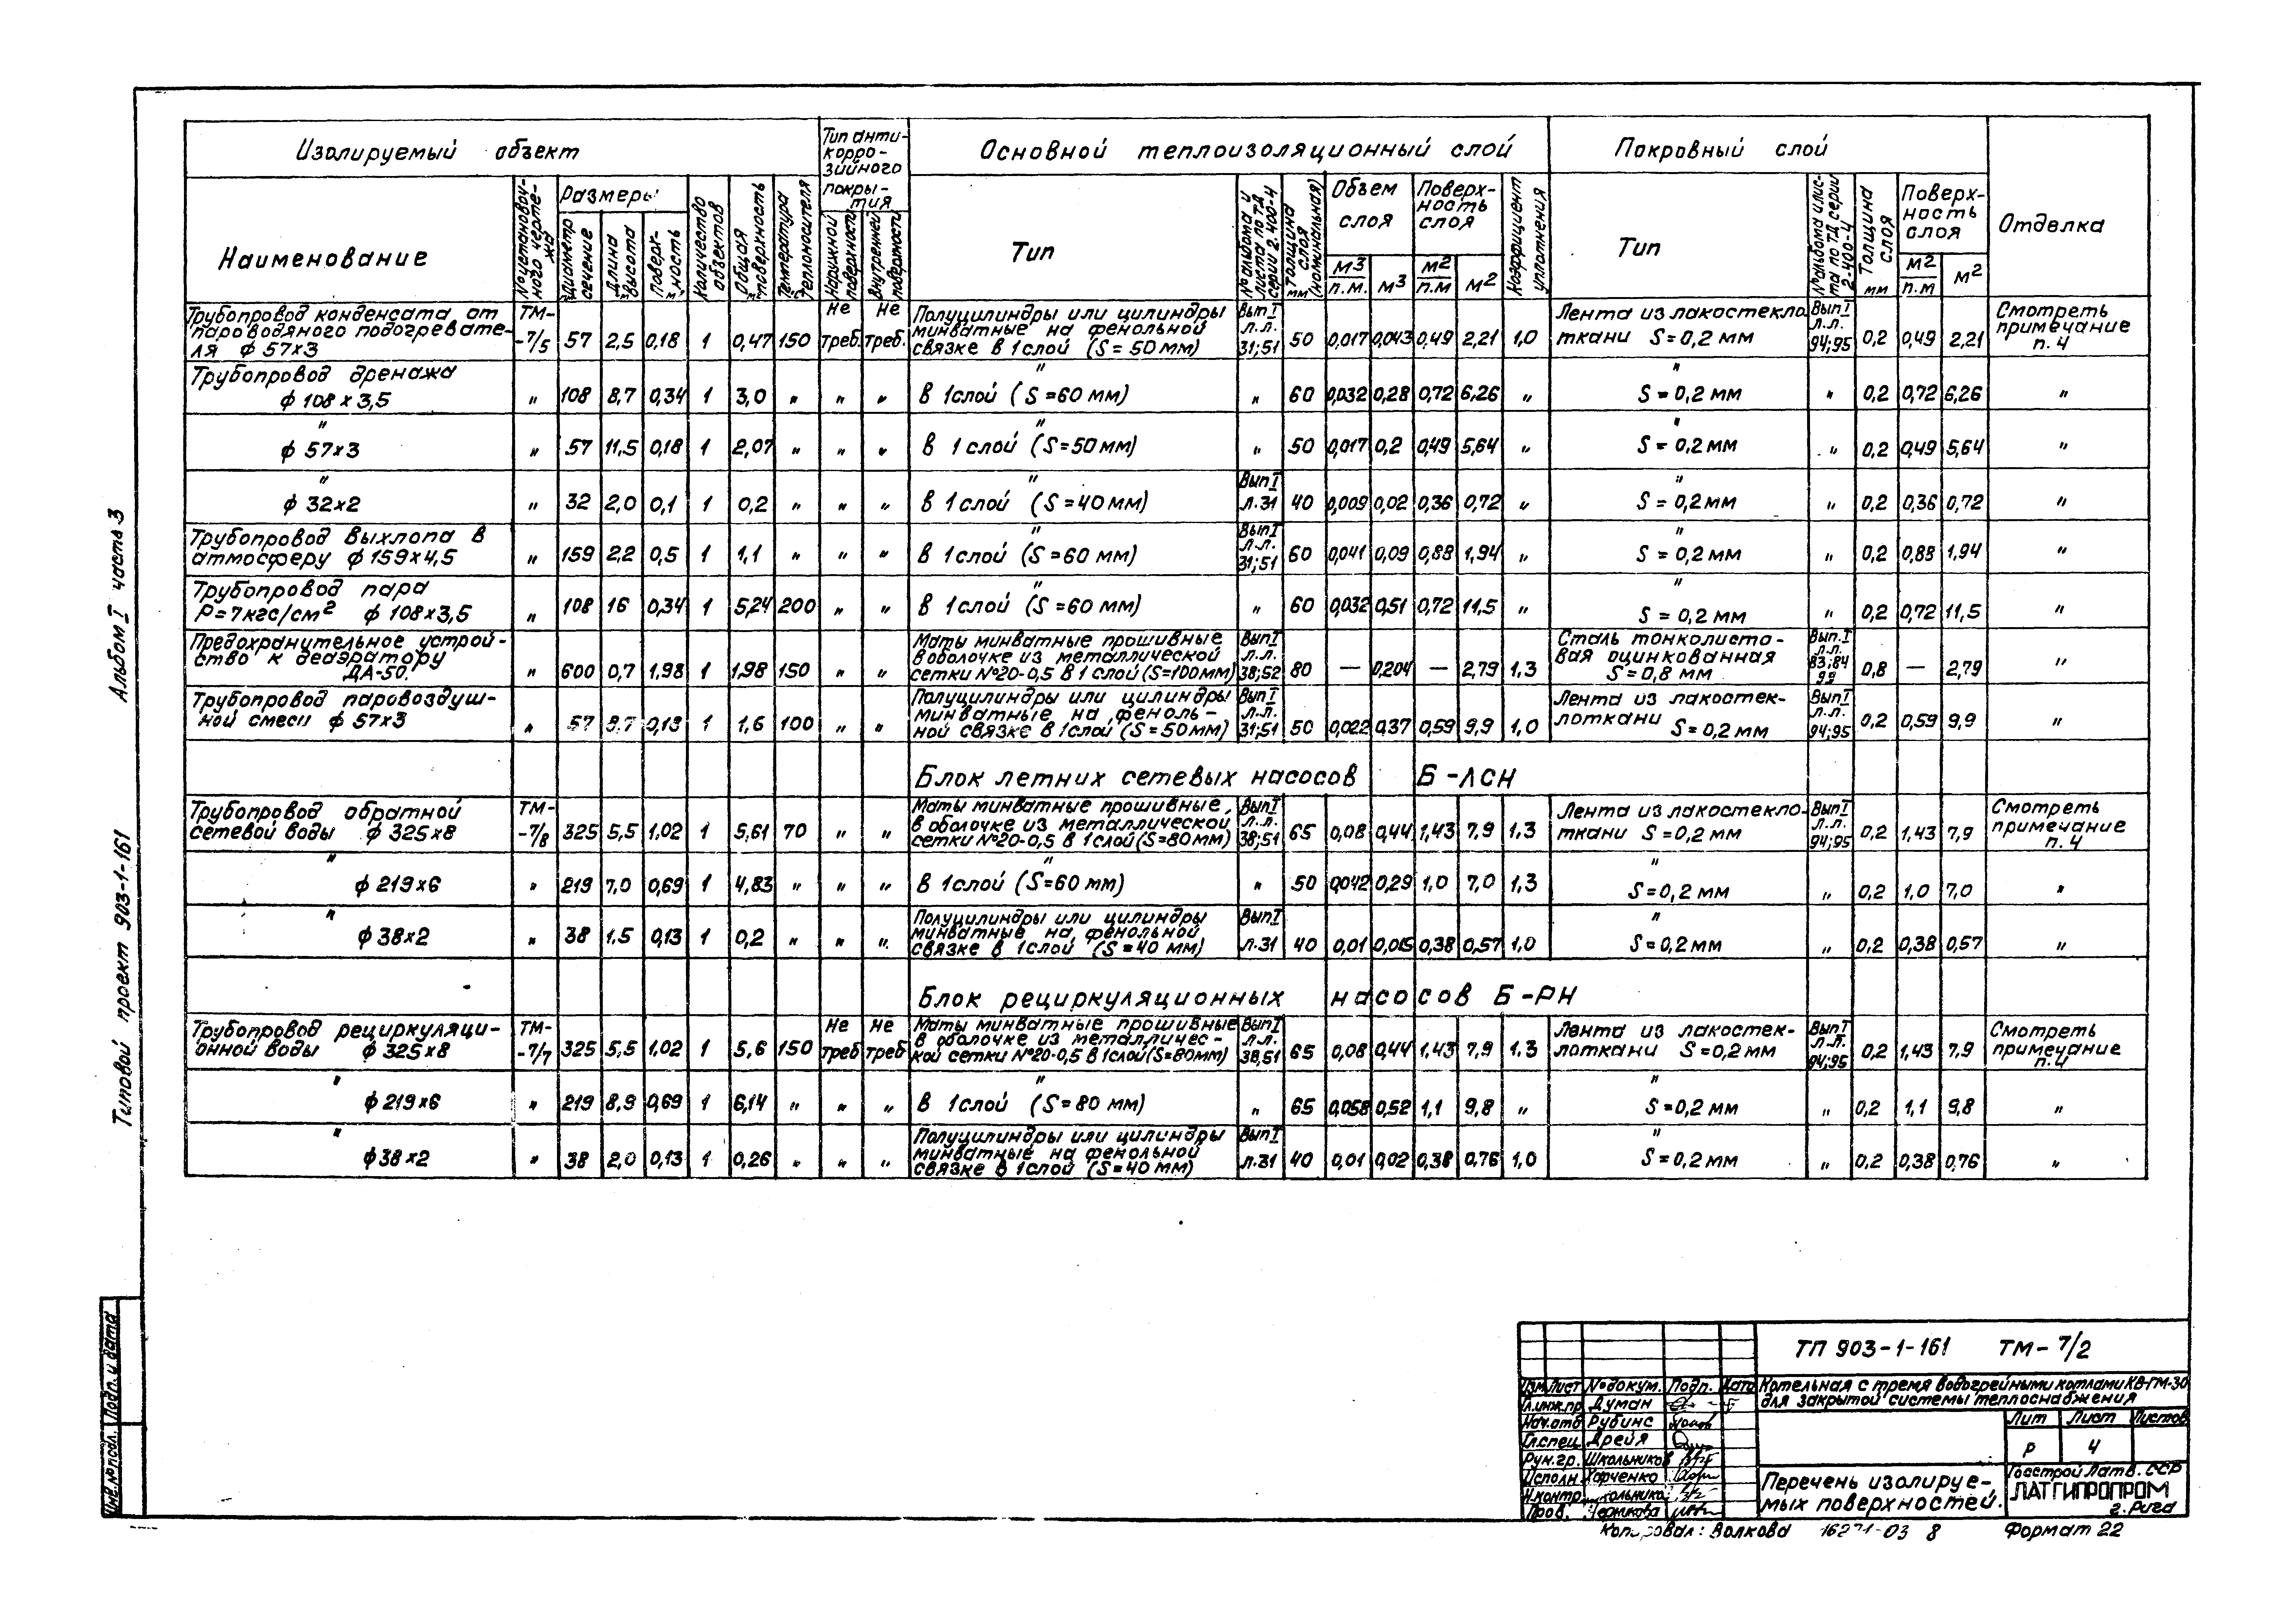 Альбом I часть 3
Типовой проект 903-1-161
Изолируемый объект
Тип антикоррозийного покрытия
Основной теплоизоляционный слой
Покровный слой
Отделка
Наименование
№ установочного чертежа
Размеры
Диаметр сечение
Длина высота м
Поверхность
Количество объектов
Общая поверхность
Температура теплоносителя
Наружной поверхности
Внутренней поверхности
Тип
№ альбома и листа по ТД серии 2.400-4
Толщина слоя (номинальная) мм
Объем слоя
м3/п.м. м3
Поверхность слоя
м2/п.м м2
Коэффициент уплотнения
Тип
№ альбома и листа по ТД серии 2-400-4
Толщина слоя мм
Поверхность слоя
м2/п.м м2
Трубопровод конденсата от пароводяного подогревателя ф 57х3 ТМ-7/5 57 2,5 0,18 1 0,47 150 Не треб. Не треб. Полуцилиндры или цилиндры минватные на фенольной связке в 1 слой (S=50мм) Вып I л.л. 31;51 50 0,017 0,043 0,49 2,21 1,0 Лента из лакостеклоткани S=0,2 мм Вып I л.л. 94;95 0,2 0,49 2,21 Смотреть примечание п.4
Трубопровод дренажа ф 108х3,5 " 108 8,7 0,34 1 3,0 " " " " в 1слой (S=60 мм) " 60 0,032 0,28 0,72 6,26 " " S=0,2 мм " 0,2 0,72 6,26 "
" ф 57х3 " 57 11,5 0,18 1 2,07 " " " " в 1 слой (S=50мм) " 50 0,017 0,2 0,49 5,64 " " S=0,2мм " 0,2 0,49 5,64 "
" ф 32х2 " 32 2,0 0,1 1 0,2 " " " " в 1 слой (S=40мм) Вып I л.31 40 0,009 0,02 0,36 0,72 " " S=0,2мм " 0,2 0,36 0,72 "
Трубопровод выхлопа в атмосферу ф 159х4,5 " 159 2,2 0,5 1 1,1 " " " " в 1 слой (S=60мм) Вып I л.л. 31;51 60 0,041 0,09 0,88 1,94 " " S=0,2мм " 0,2 0,88 1,94 "
Трубопровод пара Р=7кгс/см2 ф 108х3,5 " 108 16 0,34 1 5,24 200 " " " в 1 слой (S=60мм) " 60 0,032 0,51 0,72 11,5 " " S=0,2мм " 0,2 0,72 11,5 "
Предохранительное устройство к деаэратору ДА-50. " 600 0,7 1,98 1 1,98 150 " " Маты минватные прошивные в оболочке из металлической сетки №20-0,5 в 1 слой (S=100мм) Вып I л.л. 38;52 80 — 0,204 — 2,79 1,3 Сталь тонколистовая оцинкованная S=0,8 мм Вып. I л.л. 83;84 99 0,8 — 2,79 "
Трубопровод паровоздушной смеси ф 57х3 " 57 8,7 0,18 1 1,6 100 " " Полуцилиндры или цилиндры минватные на фенольной связке в 1слой (S=50мм) Вып I л.л. 31;51 50 0,022 0,37 0,59 9,9 1,0 Лента из лакостеклоткани S=0,2 мм Вып I л.л. 94;95 0,2 0,59 9,9 "
Блок летних сетевых насосов Б-ЛСН
Трубопровод обратной сетевой воды ф 325х8 ТМ-7/8 325 5,5 1,02 1 5,61 70 " " Маты минватные прошивные, в оболочке из металлической сетки №20-0,5 в 1 слой (S=80мм) Вып I л.л. 38;51 65 0,08 0,44 1,43 7,9 1,3 Лента из лакостеклоткани S=0,2 мм Вып I л.л. 94;95 0,2 1,43 7,9 Смотреть примечание п.4
" ф 219х6 " 219 7,0 0,69 1 4,83 " " " " в 1слой (S=60мм) " 50 0,042 0,29 1,0 7,0 1,3 " S=0,2 мм " 0,2 1,0 7,0 "
" ф 38х2 " 38 1.5 0,13 1 0,2 " " " Полуцилиндры или цилиндры минватные на фенольной связке в 1слой (S=40 мм) Вып I л.31 40 0,01 0,015 0,38 0,57 1,0 " S=0,2 мм " 0,2 0,38 0,57 "
Блок рециркуляционных насосов Б-РН
Трубопровод рециркуляционной воды ф 325х8 ТМ-7/7 325 5,5 1,02 1 5,6 150 Не треб Не треб Маты минватные прошивные в оболочке из металлической сетки №20-0,5 в 1слой (S=80мм) Вып I л.л. 38,51 65 0,08 0,44 1,43 7,9 1.3 Лента из лакостеклоткани S=0,2мм Вып I л.л. 94;95 0,2 1,43 7,9 Смотреть примечание п.4
" ф 219х6 " 219 8,9 0,69 1 6,14 " " " " в 1слой (S=80 мм) " 65 0,058 0,52 1,1 9,8 " " S=0,2 мм " 0,2 1,1 9,8 "
" ф 38х2 " 38 2,0 0,13 1 0,26 " " " Полуцилиндры или цилиндры минватные на фенольной связке в 1 слой (S=40мм) Вып I л.31 40 0,01 0,02 0,38 0,76 1,0 " S=0,2 мм " 0,2 0,38 0,76 "
Инв. № подл. Подп. и дата
ТП 903-1-161 ТМ-7/2
Изм Лист № докум. Подп. Дата
Котельная с тремя водогрейными котлами КВ-ГМ-30
для закрытой системы теплоснабжения
Гл.инж.пр Думан
Нач.отд Рубинс
Гл.спец Дрейя
Рук.гр. Школьников
Исполн Харченко
Н.контр
Пров. Черникова
Лит Лист Листов
Р 4
Перечень изолируемых поверхностей.
Госстрой Латв. ССР
ЛАТГИПРОПРОМ
г. Рига
Копировал: Волкова 16271-03 8 Формат 22